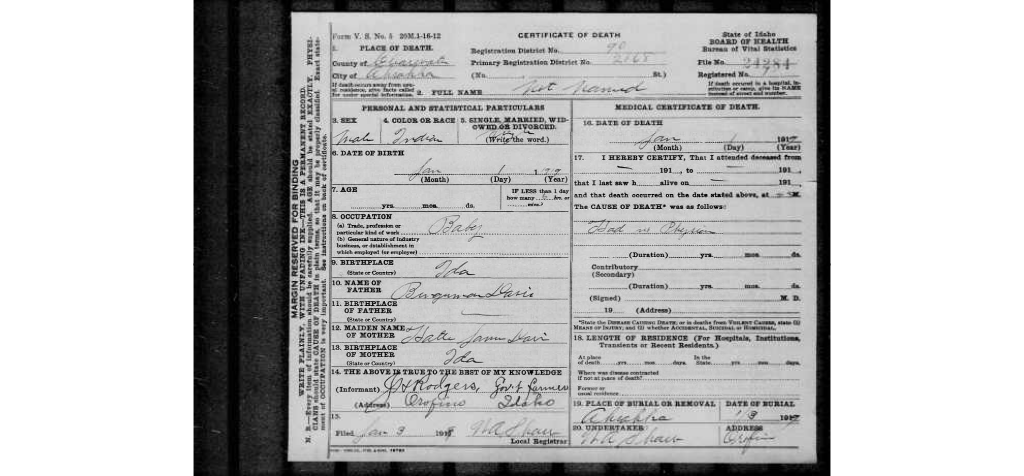 Form V. S. No. 5 20M.1-16-12
CERTIFICATE OF DEATH
State of Idaho
BOARD OF HEALTH
Bureau of Vital Statistics
1. PLACE OF DEATH.
County of
City of Ahsahka
If death occurs away from usual residence, give facts called for under special information.
Registration District No. 90
Primary Registration District No. 2168
(No. St.)
2. FULL NAME Not Named
File No.
Registered No.
If death occured in a hospital, institution or camp, give its NAME instead of street and number.
PERSONAL AND STATISTICAL PARTICULARS
3. SEX
Male
4. COLOR OR RACE
Indian
5. SINGLE, MARRIED, WIDOWED OR DIVORCED.
(Write the word.)
6. DATE OF BIRTH
Jan 1
(Month) (Day) (Year)
7. AGE
yrs. mos. ds.
IF LESS than 1 day
how many hrs or
mins.?
8. OCCUPATION
(a) Trade, profession or
particular kind of work Baby
(b) General nature of industry
business, or establishment in
which employed (or employer)
9. BIRTHPLACE
(State or Country) Ida
10. NAME OF
FATHER Davis
11. BIRTHPLACE
OF FATHER —
(State or Country)
12. MAIDEN NAME
OF MOTHER
13. BIRTHPLACE
OF MOTHER Ida
(State or Country)
14. THE ABOVE IS TRUE TO THE BEST OF MY KNOWLEDGE
(Informant) Rodgers, Govt farmer
(Address) Orofino Idaho
15.
Filed Jan 3 191
Local Registrar
MEDICAL CERTIFICATE OF DEATH.
16. DATE OF DEATH
Jan 191
(Month) (Day) (Year)
17. I HEREBY CERTIFY, That I attended deceased from
191 , to 191
that I last saw h alive on 191
and that death occurred on the date stated above, at M.
The CAUSE OF DEATH* was as follows:
Had no
(Duration) yrs. mos. ds.
Contributory
(Secondary)
(Duration) yrs. mos. ds.
(Signed) M. D.
19 (Address)
*State the DISEASE CAUSING DEATH; or in deaths from VIOLENT CAUSES, state (i)
MEANS OF INJURY; and (ii) whether ACCIDENTAL, SUICIDAL or HOMICIDAL.
18. LENGTH OF RESIDENCE (For Hospitals, Institutions,
Transients or Recent Residents.)
At place
of death yrs mos. days. In the
State yrs mos. days.
Where was disease contracted
if not at place of death?
Former or
usual residence
19. PLACE OF BURIAL OR REMOVAL
Ahsahka
DATE OF BURIAL
20. UNDERTAKER
ADDRESS
Orofino
MARGIN RESERVED FOR BINDING
WRITE PLAINLY, WITH UNFADING INK—THIS IS A PERMANENT RECORD.
N. B.—Every item of information should be carefully supplied. AGE should be stated EXACTLY. PHYSICIANS should state CAUSE OF DEATH in plain terms, so that it may be properly classified. Exact statement of OCCUPATION is very important. See instructions on back of certificate.